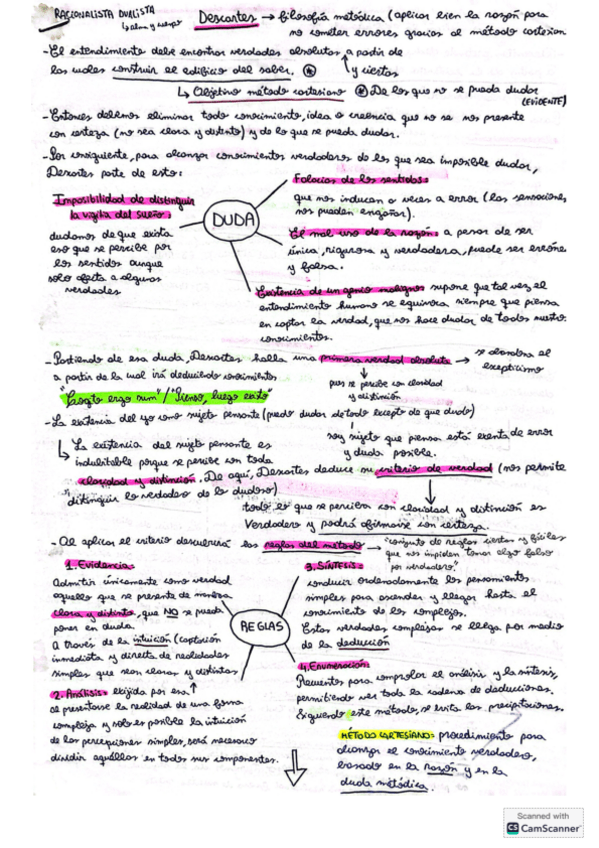 RACIONALISTA DUALISTA
↳ alma y cuerpo
Descartes → filosofía metódica (aplicar bien la razón para
no cometer errores gracias al método cartesiano
- El entendimiento debe encontrar verdades absolutas a partir de
las cuales construir el edificio del saber. ✱
y ciertas
↳ Objetivo método cartesiano ✱ De los que no se pueda dudar
(EVIDENTE)
- Entonces debemos eliminar todo conocimiento, idea o creencia que no se nos presente
con certeza (no sea clara y distinta) y de lo que se pueda dudar.
- Por consiguiente, para alcanzar conocimientos verdaderos de los que sea imposible dudar,
Descartes parte de esto:
DUDA
Imposibilidad de distinguir
la vigilia del sueño:
dudamos de que exista
eso que se percibe por
los sentidos aunque
solo afecta a algunas
verdades
Falacias de los sentidos:
que nos inducen a veces a error (las sensaciones
nos pueden engañar).
El mal uso de la razón: a pesar de ser
única, rigurosa y verdadera, puede ser errónea
y falsa.
Existencia de un genio maligno: supone que tal vez el
entendimiento humano se equivoca siempre que piensa
en captar la verdad, que nos hace dudar de todos nuestros
conocimientos.
- Partiendo de esa duda, Descartes halla una primera verdad absoluta → se abandona el
escepticismo
a partir de la cual irá deduciendo conocimientos
pues se percibe con claridad
y distinción
"Cogito ergo sum" / "Pienso, luego existo"
- La existencia del yo como sujeto pensante (puedo dudar de todo excepto de que dudo)
soy sujeto que piensa está exenta de error
y duda posible.
↳ La existencia del sujeto pensante es
indubitable porque se percibe con toda
claridad y distinción. De aquí, Descartes deduce su criterio de verdad (nos permite
distinguir lo verdadero de lo dudoso)
todo lo que se perciba con claridad y distinción es
verdadero y podrá afirmarse con certeza.
- Al aplicar el criterio descubrirá las reglas del método → "conjunto de reglas ciertas y fáciles
que nos impiden tomar algo falso
por verdadero."
REGLAS
1. Evidencia:
Admitir únicamente como verdad
aquello que se presente de manera
clara y distinta, que NO se pueda
poner en duda.
A través de la intuición (captación
inmediata y directa de realidades
simples que son claras y distintas
2. Análisis: exigida por esa ↑
al presentarse la realidad de una forma
compleja y solo es posible la intuición
de las percepciones simples, será necesario
dividir aquéllas en todos sus componentes.
3. SÍNTESIS:
conducir ordenadamente los pensamientos
simples para ascender y llegar hasta el
conocimiento de los complejos.
Estas verdades complejas se llega por medio
de la deducción
4. Enumeración:
Recuentos para comprobar el análisis y la síntesis,
permitiendo ver toda la cadena de deducciones.
Siguiendo este método, se evita las precipitaciones.
MÉTODO CARTESIANO: procedimiento para
alcanzar el conocimiento verdadero,
basado en la razón y en la
duda metódica.
Scanned with
CS CamScanner